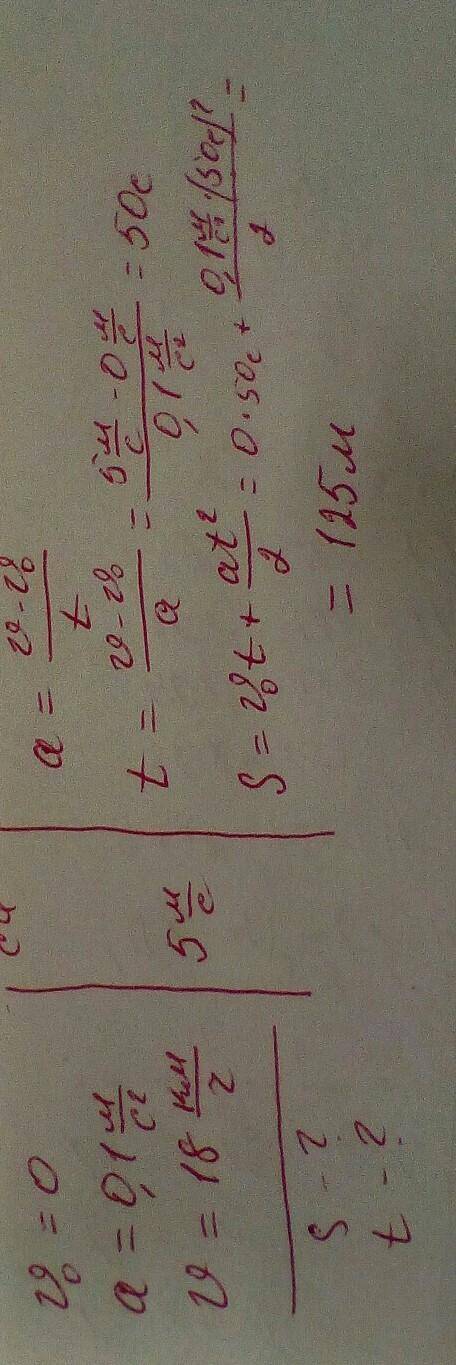 v₀ = 0
a = 0,1 м/с²
v = 18 км/г
S - ?
t - ?
си
5 м/с
a = (v - v₀)/t
t = (v - v₀)/a = (5 м/с - 0 м/с)/(0,1 м/с²) = 50с
S = v₀t + at²/2 = 0·50с + (0,1 м/с² · (50с)²)/2 =
= 125м